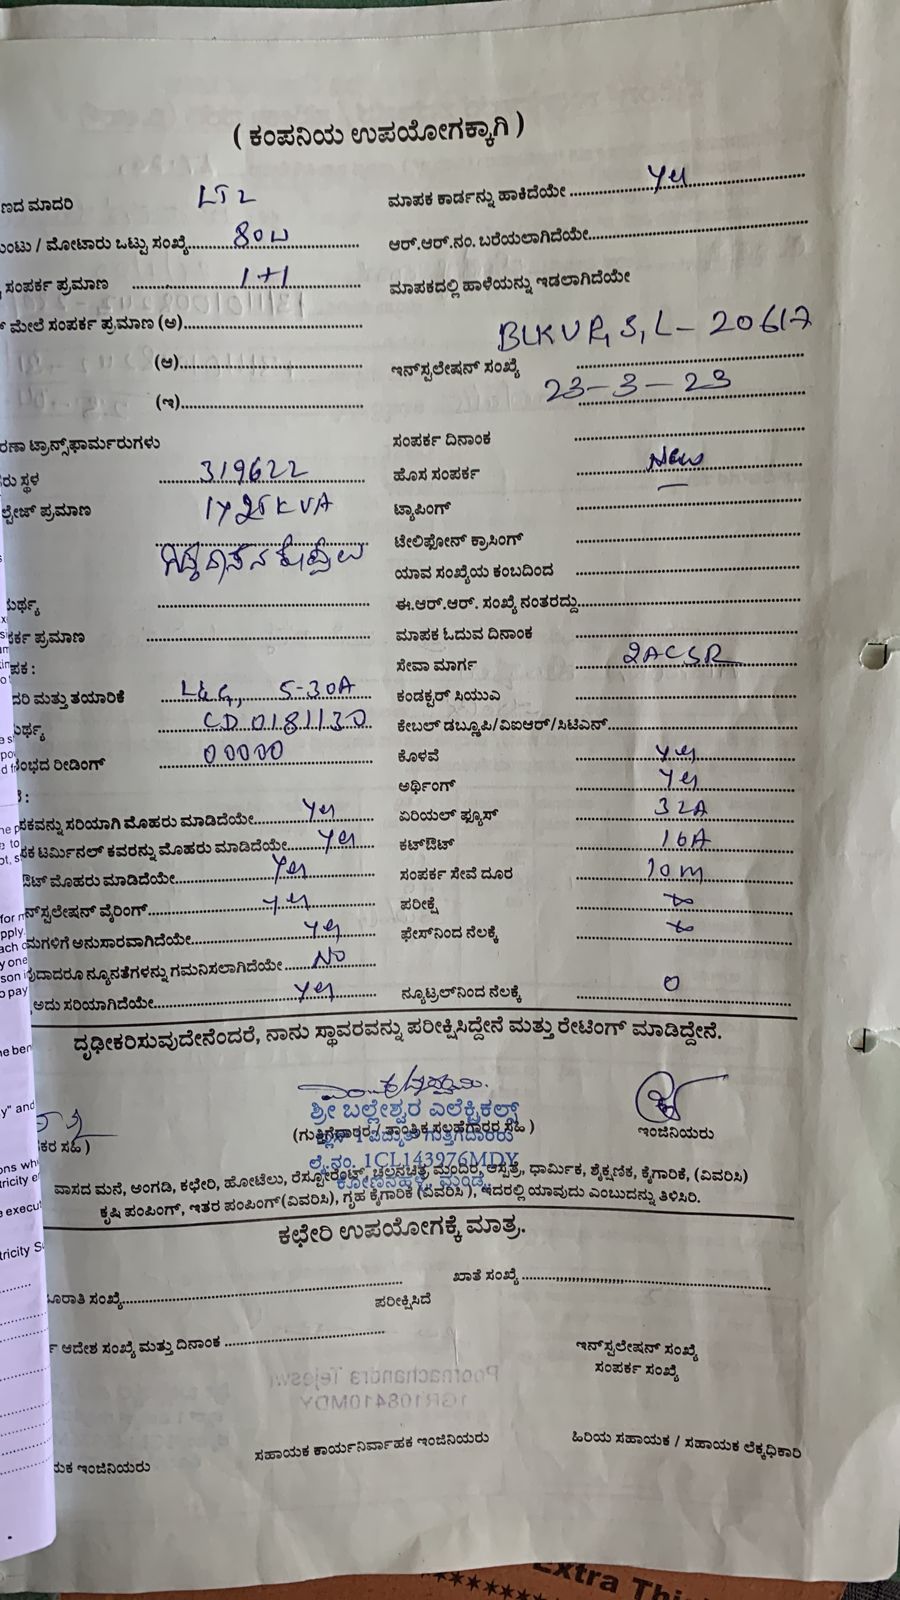 ( ಕಂಪನಿಯ ಉಪಯೋಗಕ್ಕಾಗಿ )
ಣದ ಮಾದರಿ LT2 ಮಾಪಕ ಕಾರ್ಡನ್ನು ಹಾಕಿದೆಯೇ ........ Yes
ುಂಟು / ಮೋಟಾರು ಒಟ್ಟು ಸಂಖ್ಯೆ........ 80W ಆರ್.ಆರ್.ನಂ. ಬರೆಯಲಾಗಿದೆಯೇ........
ಸಂಪರ್ಕ ಪ್ರಮಾಣ ........ 1+1 ಮಾಪಕದಲ್ಲಿ ಹಾಳೆಯನ್ನು ಇಡಲಾಗಿದೆಯೇ
ಮೇಲೆ ಸಂಪರ್ಕ ಪ್ರಮಾಣ (ಅ)........ BLKVP, S, L - 20617
(ಆ)........ ಇನ್‌ಸ್ಟಲೇಷನ್ ಸಂಖ್ಯೆ ........
(ಇ)........ 23-3-23
ರಣಾ ಟ್ರಾನ್ಸ್‌ಫಾರ್ಮರುಗಳು ಸಂಪರ್ಕ ದಿನಾಂಕ ........
ರು ಸ್ಥಳ 319622 ಹೊಸ ಸಂಪರ್ಕ New
ಲ್ಟೇಜ್ ಪ್ರಮಾಣ 1X25KVA ಟ್ಯಾಪಿಂಗ್ ........
ಟೇಲಿಫೋನ್ ಕ್ರಾಸಿಂಗ್ ........
ಯಾವ ಸಂಖ್ಯೆಯ ಕಂಬದಿಂದ ........
ಮರ್ಥ್ಯ ........ ಈ.ಆರ್.ಆರ್. ಸಂಖ್ಯೆ ನಂತರದ್ದು........
ರ್ಕ ಪ್ರಮಾಣ ........ ಮಾಪಕ ಓದುವ ದಿನಾಂಕ ........
ಪಕ : ಸೇವಾ ಮಾರ್ಗ 2ACSR
ದರಿ ಮತ್ತು ತಯಾರಿಕೆ L&G, 5-30A ಕಂಡಕ್ಟರ್ ಸಿಯುಎ ........
ರ್ಥ್ಯ CD0181130 ಕೇಬಲ್ ಡಬ್ಲ್ಯೂಪಿ/ವಿಐಆರ್/ಸಿಟಿಎನ್........
ಂಭದ ರೀಡಿಂಗ್ 00000 ಕೊಳವೆ Yes
ಅರ್ಥಿಂಗ್ Yes
ಪಕವನ್ನು ಸರಿಯಾಗಿ ಮೊಹರು ಮಾಡಿದೆಯೇ........ Yes ಏರಿಯಲ್ ಫ್ಯೂಸ್ 32A
ಪಕ ಟರ್ಮಿನಲ್ ಕವರನ್ನು ಮೊಹರು ಮಾಡಿದೆಯೇ ........ Yes ಕಟ್‌ಔಟ್ 16A
ಔಟ್ ಮೊಹರು ಮಾಡಿದೆಯೇ........ Yes ಸಂಪರ್ಕ ಸೇವೆ ದೂರ 10m
ನ್‌ಸ್ಟಲೇಷನ್ ವೈರಿಂಗ್........ Yes ಪರೀಕ್ಷೆ
ಮಗಳಿಗೆ ಅನುಸಾರವಾಗಿದೆಯೇ........ Yes ಫೇಸ್‌ನಿಂದ ನೆಲಕ್ಕೆ
ುದಾದರೂ ನ್ಯೂನತೆಗಳನ್ನು ಗಮನಿಸಲಾಗಿದೆಯೇ ........ No
ಅದು ಸರಿಯಾಗಿದೆಯೇ........ Yes ನ್ಯೂಟ್ರಲ್‌ನಿಂದ ನೆಲಕ್ಕೆ 0
ದೃಢೀಕರಿಸುವುದೇನೆಂದರೆ, ನಾನು ಸ್ಥಾವರವನ್ನು ಪರೀಕ್ಷಿಸಿದ್ದೇನೆ ಮತ್ತು ರೇಟಿಂಗ್ ಮಾಡಿದ್ದೇನೆ.
ಶ್ರೀ ಬಲ್ಲೇಶ್ವರ ಎಲೆಕ್ಟ್ರಿಕಲ್ಸ್
ಕರ ಸಹಿ ) (ಗುತ್ತಿಗೆದಾರರ / ತಾಂತ್ರಿಕ ಸಲಹೆಗಾರರ ಸಹಿ ) ಇಂಜಿನಿಯರು
ಲೈ.ನಂ. 1CL143976MDY
ವಾಸದ ಮನೆ, ಅಂಗಡಿ, ಕಛೇರಿ, ಹೋಟೆಲು, ರೆಸ್ಟೋರೆಂಟ್, ಚಲನಚಿತ್ರ ಮಂದಿರ, ಆಸ್ಪತ್ರೆ, ಧಾರ್ಮಿಕ, ಶೈಕ್ಷಣಿಕ, ಕೈಗಾರಿಕೆ, (ವಿವರಿಸಿ)
ಕೃಷಿ ಪಂಪಿಂಗ್, ಇತರ ಪಂಪಿಂಗ್ (ವಿವರಿಸಿ), ಗೃಹ ಕೈಗಾರಿಕೆ (ವಿವರಿಸಿ ), ಇದರಲ್ಲಿ ಯಾವುದು ಎಂಬುದನ್ನು ತಿಳಿಸಿರಿ.
ಕಛೇರಿ ಉಪಯೋಗಕ್ಕೆ ಮಾತ್ರ.
ೂರಾತಿ ಸಂಖ್ಯೆ........ ಖಾತೆ ಸಂಖ್ಯೆ ........
ಪರೀಕ್ಷಿಸಿದೆ
ಆದೇಶ ಸಂಖ್ಯೆ ಮತ್ತು ದಿನಾಂಕ ........ ಇನ್‌ಸ್ಟಲೇಷನ್ ಸಂಖ್ಯೆ
ಸಂಪರ್ಕ ಸಂಖ್ಯೆ
ಯಕ ಇಂಜಿನಿಯರು ಸಹಾಯಕ ಕಾರ್ಯನಿರ್ವಾಹಕ ಇಂಜಿನಿಯರು ಹಿರಿಯ ಸಹಾಯಕ / ಸಹಾಯಕ ಲೆಕ್ಕಧಿಕಾರಿ
Extra Thi